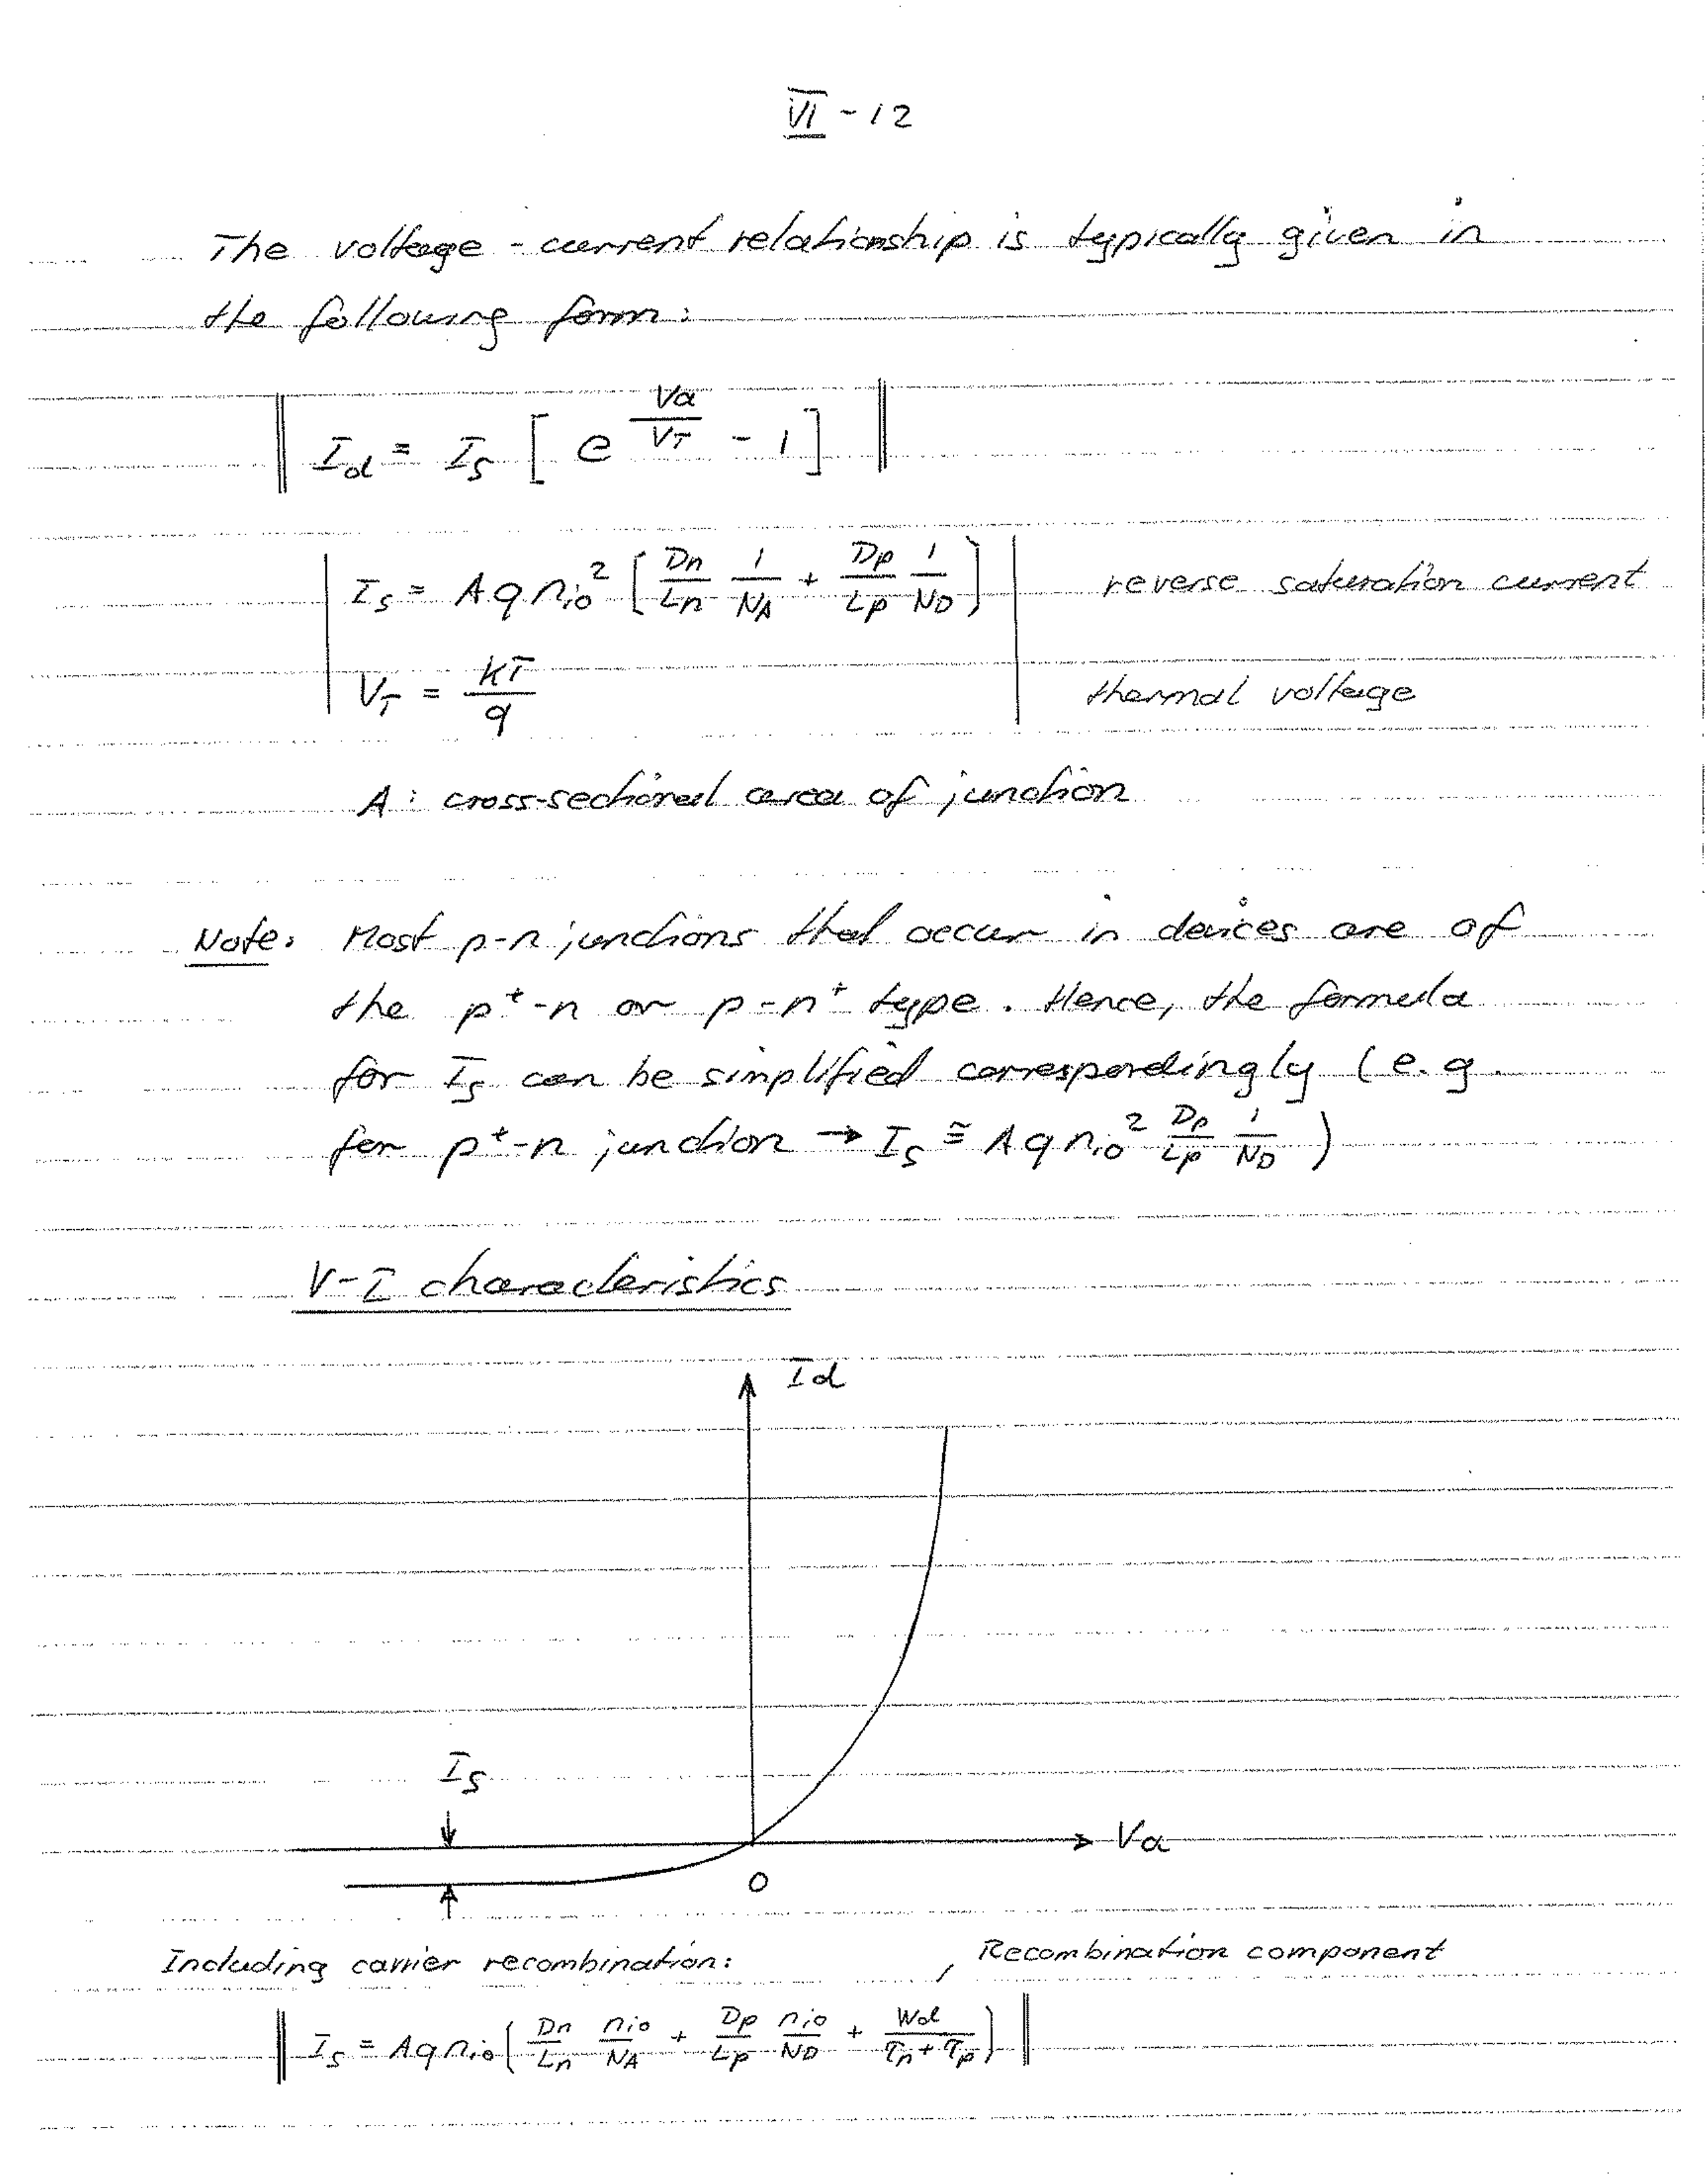 VI - 12
The voltage - current relationship is typically given in
the following form:
I_d = I_S [ e^{Va/V_T} - 1 ]
I_S = A q n_{io}^2 [ Dn/Ln 1/N_A + Dp/Lp 1/N_D ] reverse saturation current
V_T = kT/q thermal voltage
A : cross-sectional area of junction
Note: Most p-n junctions that occur in devices are of
the p^+-n or p-n^+ type. Hence, the formula
for I_S can be simplified correspondingly (e.g.
for p^+-n junction → I_S ≅ A q n_{io}^2 Dp/Lp 1/N_D )
V-I characteristics
Id
I_S
Va
0
Including carrier recombination: Recombination component
I_S = A q n_{io} ( Dn/Ln n_{io}/N_A + Dp/Lp n_{io}/N_D + Wd/(τ_n + τ_p) )